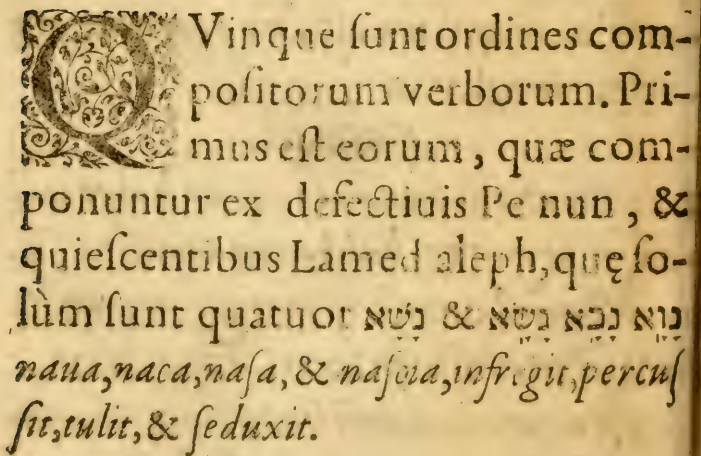 QVinque ſunt ordines com-
poſitorum verborum. Pri-
mus eſt eorum, quæ com-
ponuntur ex defectiuis Pe nun, &
quieſcentibus Lamed aleph, quę ſo-
lùm ſunt quatuor נָוָא נָכָא נָשָׂא & נָשָׁא
naua, naca, naſa, & naſcia, infregit, percuſ
ſit, tulit, & ſeduxit.